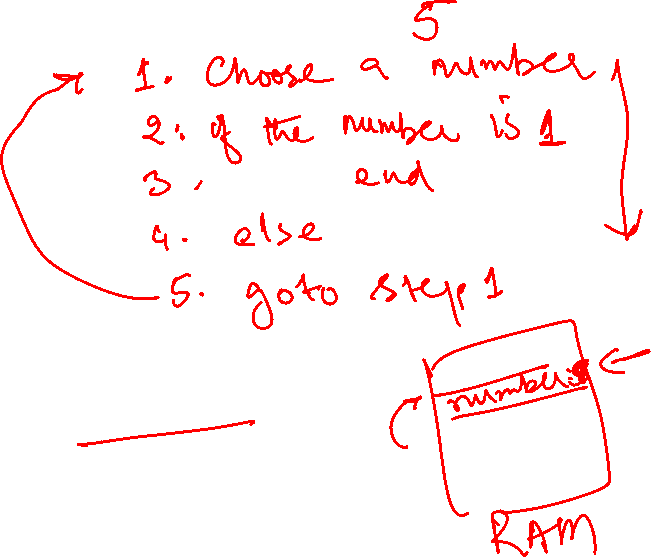 5
1. Choose a number
2. if the number is 1
3. end
4. else
5. goto step 1
number:
RAM